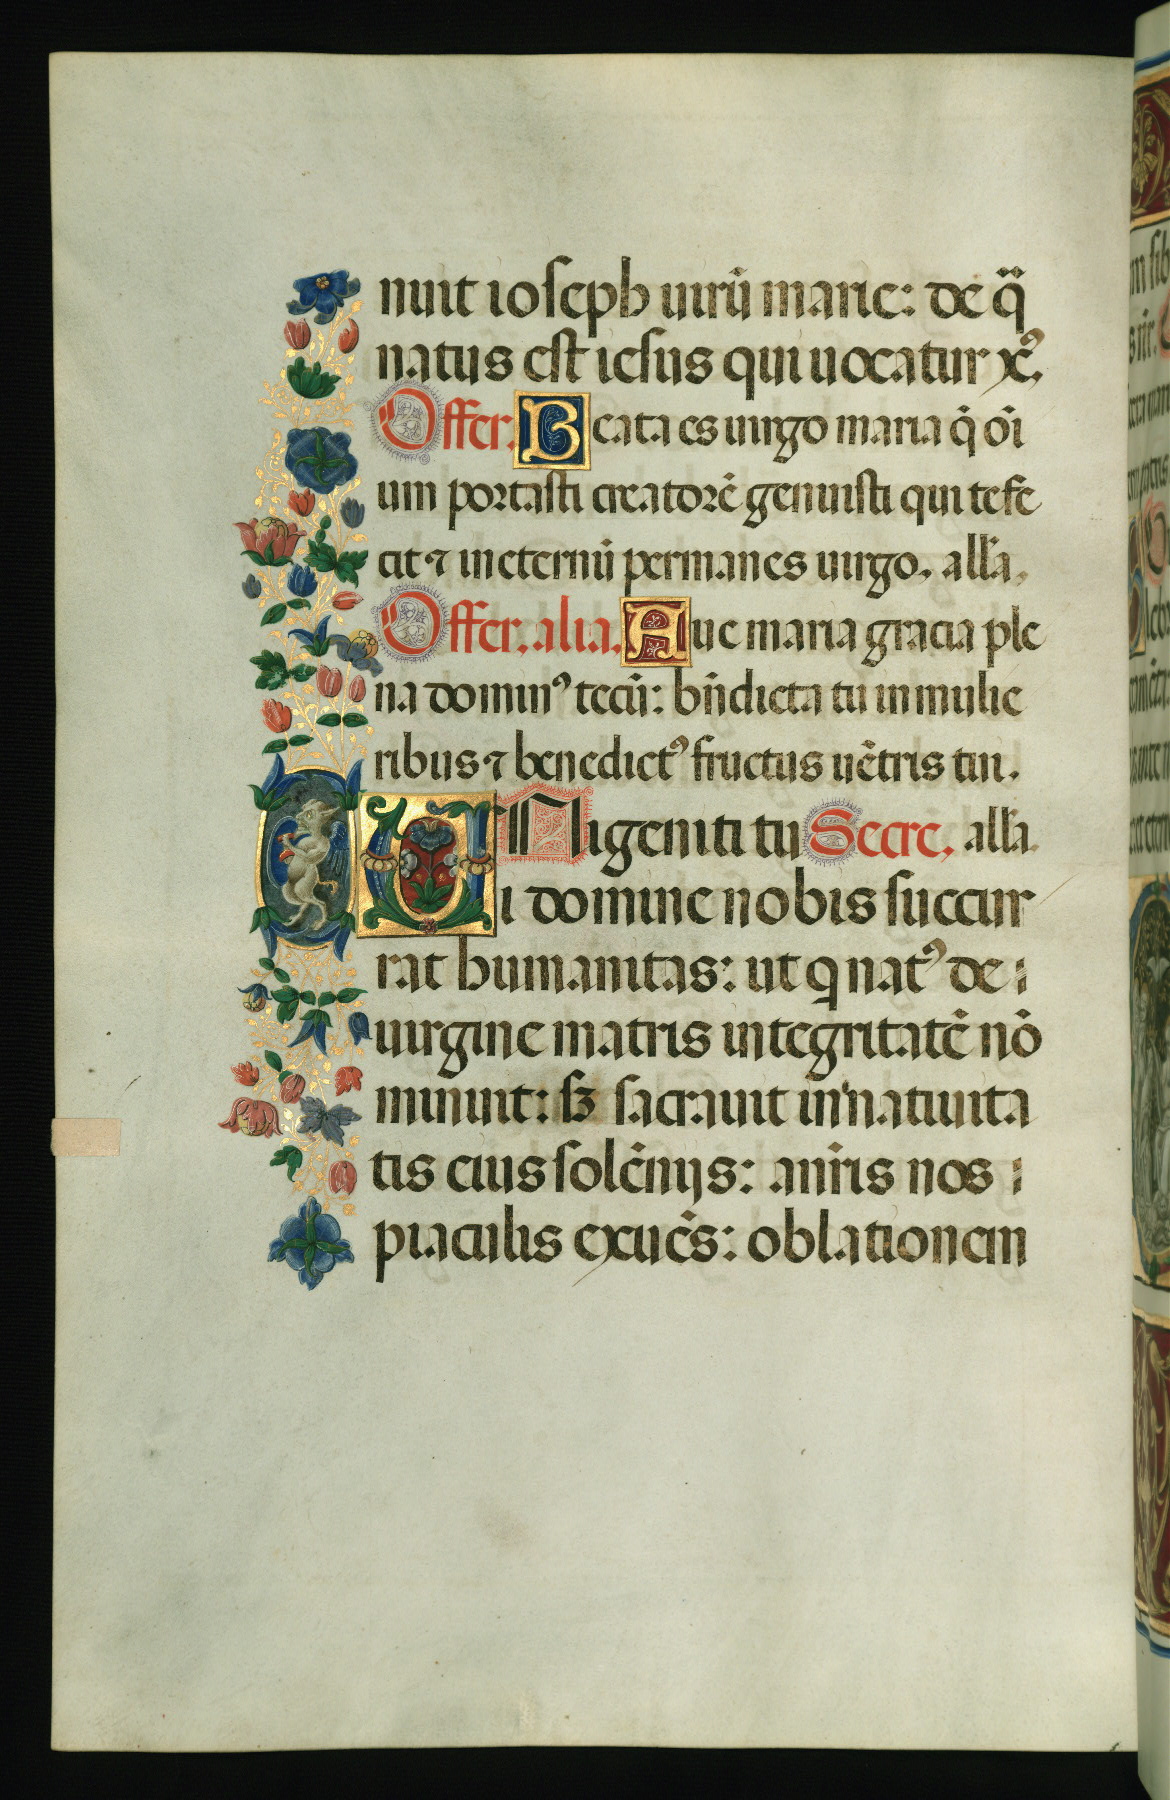 nuit ioseph uirũ marie: de q̈̄
natus est iesus qui uocatur xc̃ꝰ
Offer. Beata es uirgo maria q̃ oĩ
um portasti creatorẽ genuisti qui te fe
cit ⁊ in eternũ permanes uirgo. alľa.
Offer. alia. Aue maria gracia ple
na dominꝰ tecũ: bñdicta tu in mulie
ribus ⁊ benedictꝰ fructus uẽtris tui.
UNigeniti tu Secre. alľa.
i domine nobis succur
rat humanitas: ut q natꝰ de
uirgine matris integritatẽ nõ
minuit: sꝫ sacrauit in natiuita
tis eius solẽnijs: a nr̃is nos
piaculis exuẽs: oblationem